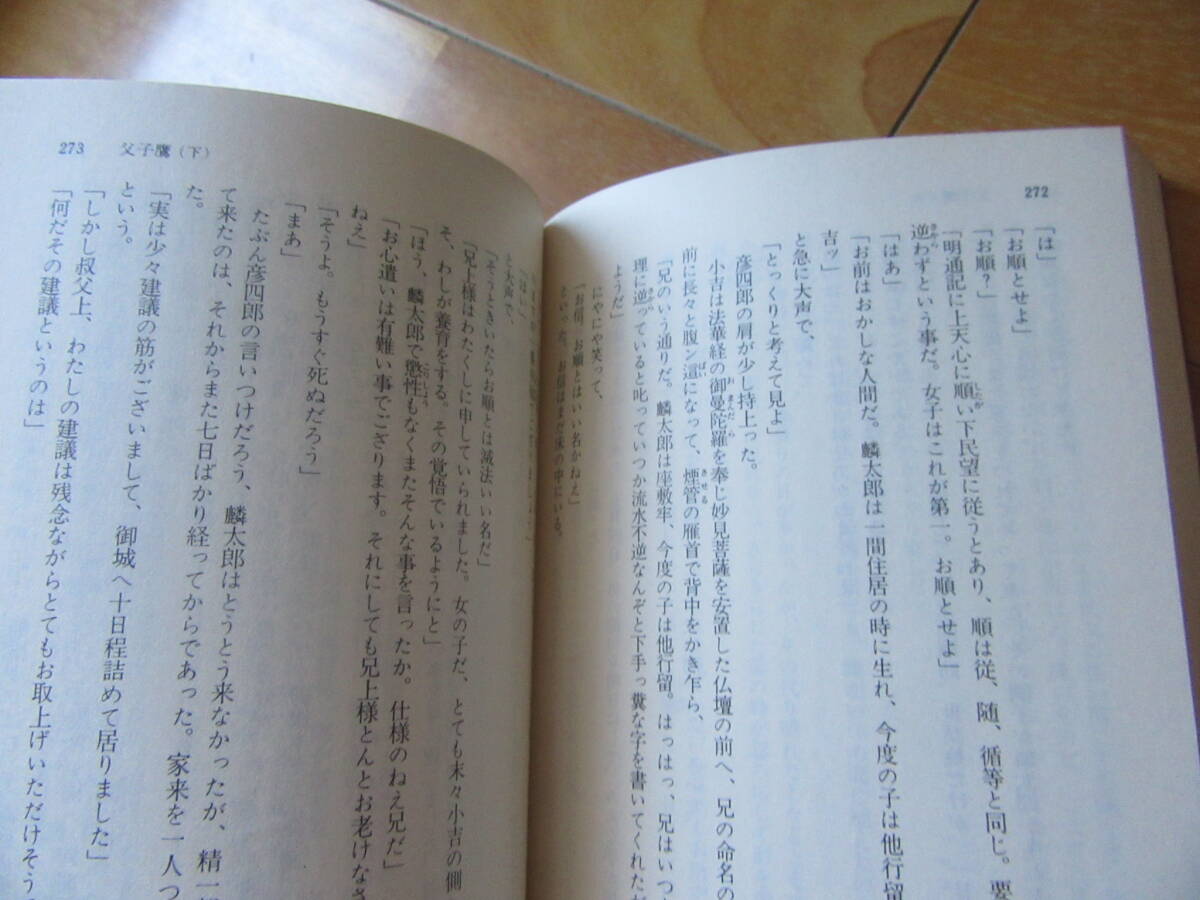 272
「は」
「お順とせよ」
「お順？」
「明通記に上天心に順い下民望に従うとあり、順は従、随、循等と同じ。要
逆わずという事だ。女子はこれが第一。お順とせよ」
「はあ」
「お前はおかしな人間だ。麟太郎は一間住居の時に生れ、今度の子は他行留
吉ッ」
と急に大声で、
「とっくりと考えて見よ」
彦四郎の肩が少し持上った。
小吉は法華経の御曼陀羅を奉じ妙見菩薩を安置した仏壇の前へ、兄の命名の
前に長々と腹ン這になって、煙管の雁首で背中をかき乍ら、
「兄のいう通りだ。麟太郎は座敷牢、今度の子は他行留。はっはっ、兄はいつ
理に逆っていると叱っていつか流水不逆なんぞと下手っ糞な字を書いてくれた
ようだ」
にやにや笑って、
「お信、お順とはいい名かねえ」
といった。お信はまだ床の中にいる。
273 父子鷹（下）
「はい」
と大声で、
「そうときいたらお順とは滅法いい名だ」
「兄上様はわたくしに申していられました。女の子だ、とても末々小吉の側
そ、わしが養育をする。その覚悟でいるようにと」
「ほう、麟太郎で懲性もなくまたそんな事を言ったか。仕様のねえ兄だ」
「お心遣いは有難い事でござります。それにしても兄上様とんとお老けなさ
ねえ」
「そうよ。もうすぐ死ぬだろう」
「まあ」
たぶん彦四郎の言いつけだろう、麟太郎はとうとう来なかったが、精一
て来たのは、それからまた七日ばかり経ってからであった。家来を一人つ
た。
「実は少々建議の筋がございまして、御城へ十日程詰めて居りました」
という。
「しかし叔父上、わたしの建議は残念ながらとてもお取上げいただけそう
「何だその建議というのは」